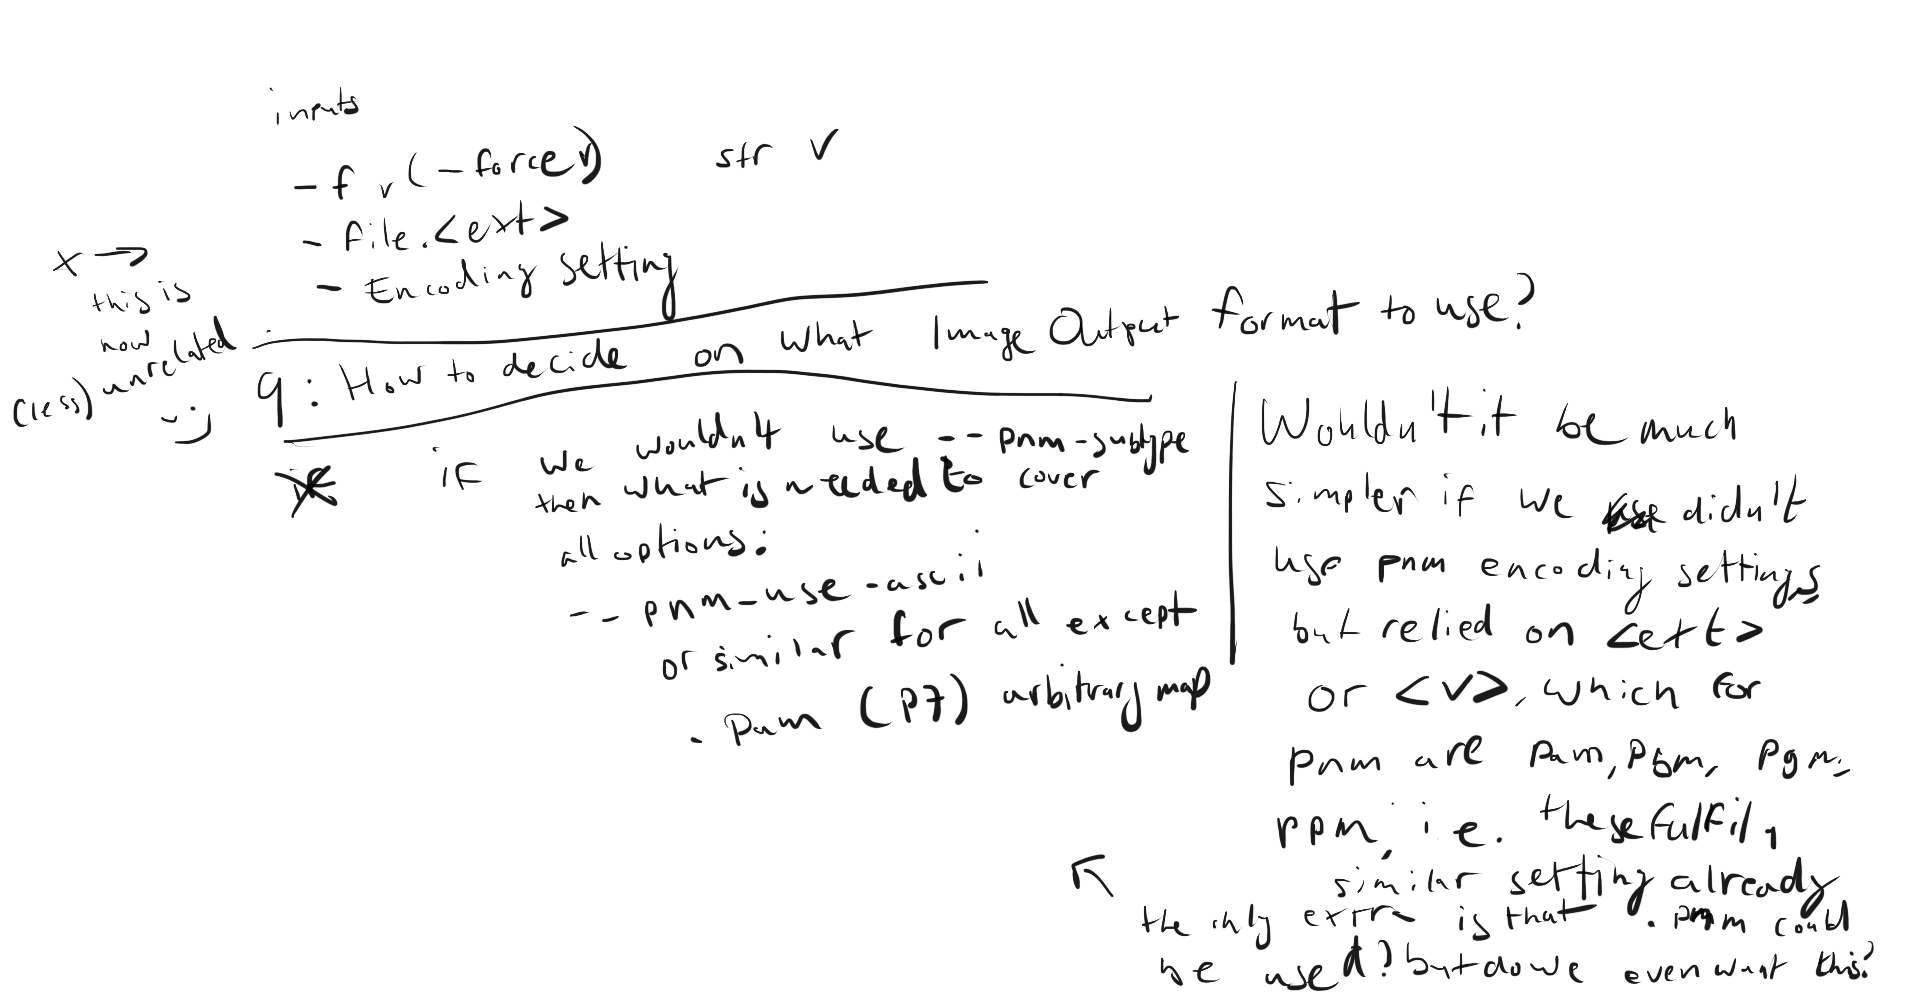 inputs
- f v (-force v)    str v
- file.<ext>
- Encoding setting
x →
this is
now
(less) unrelated
:)
q: How to decide on what Image Output format to use?
if we wouldn't use --pnm-subtype
then what is needed to cover
all options:
-- pnm-use-ascii
or similar for all except
. pam (P7) arbitrary map
Wouldn't it be much
simpler if we didn't
use pnm encoding settings
but relied on <ext>
or <v>, which for
pnm are pam, pbm, pgm,
ppm, i.e. these fulfil
similar setting already
↖
the only extra is that .pnm could
be used? but do we even want this?